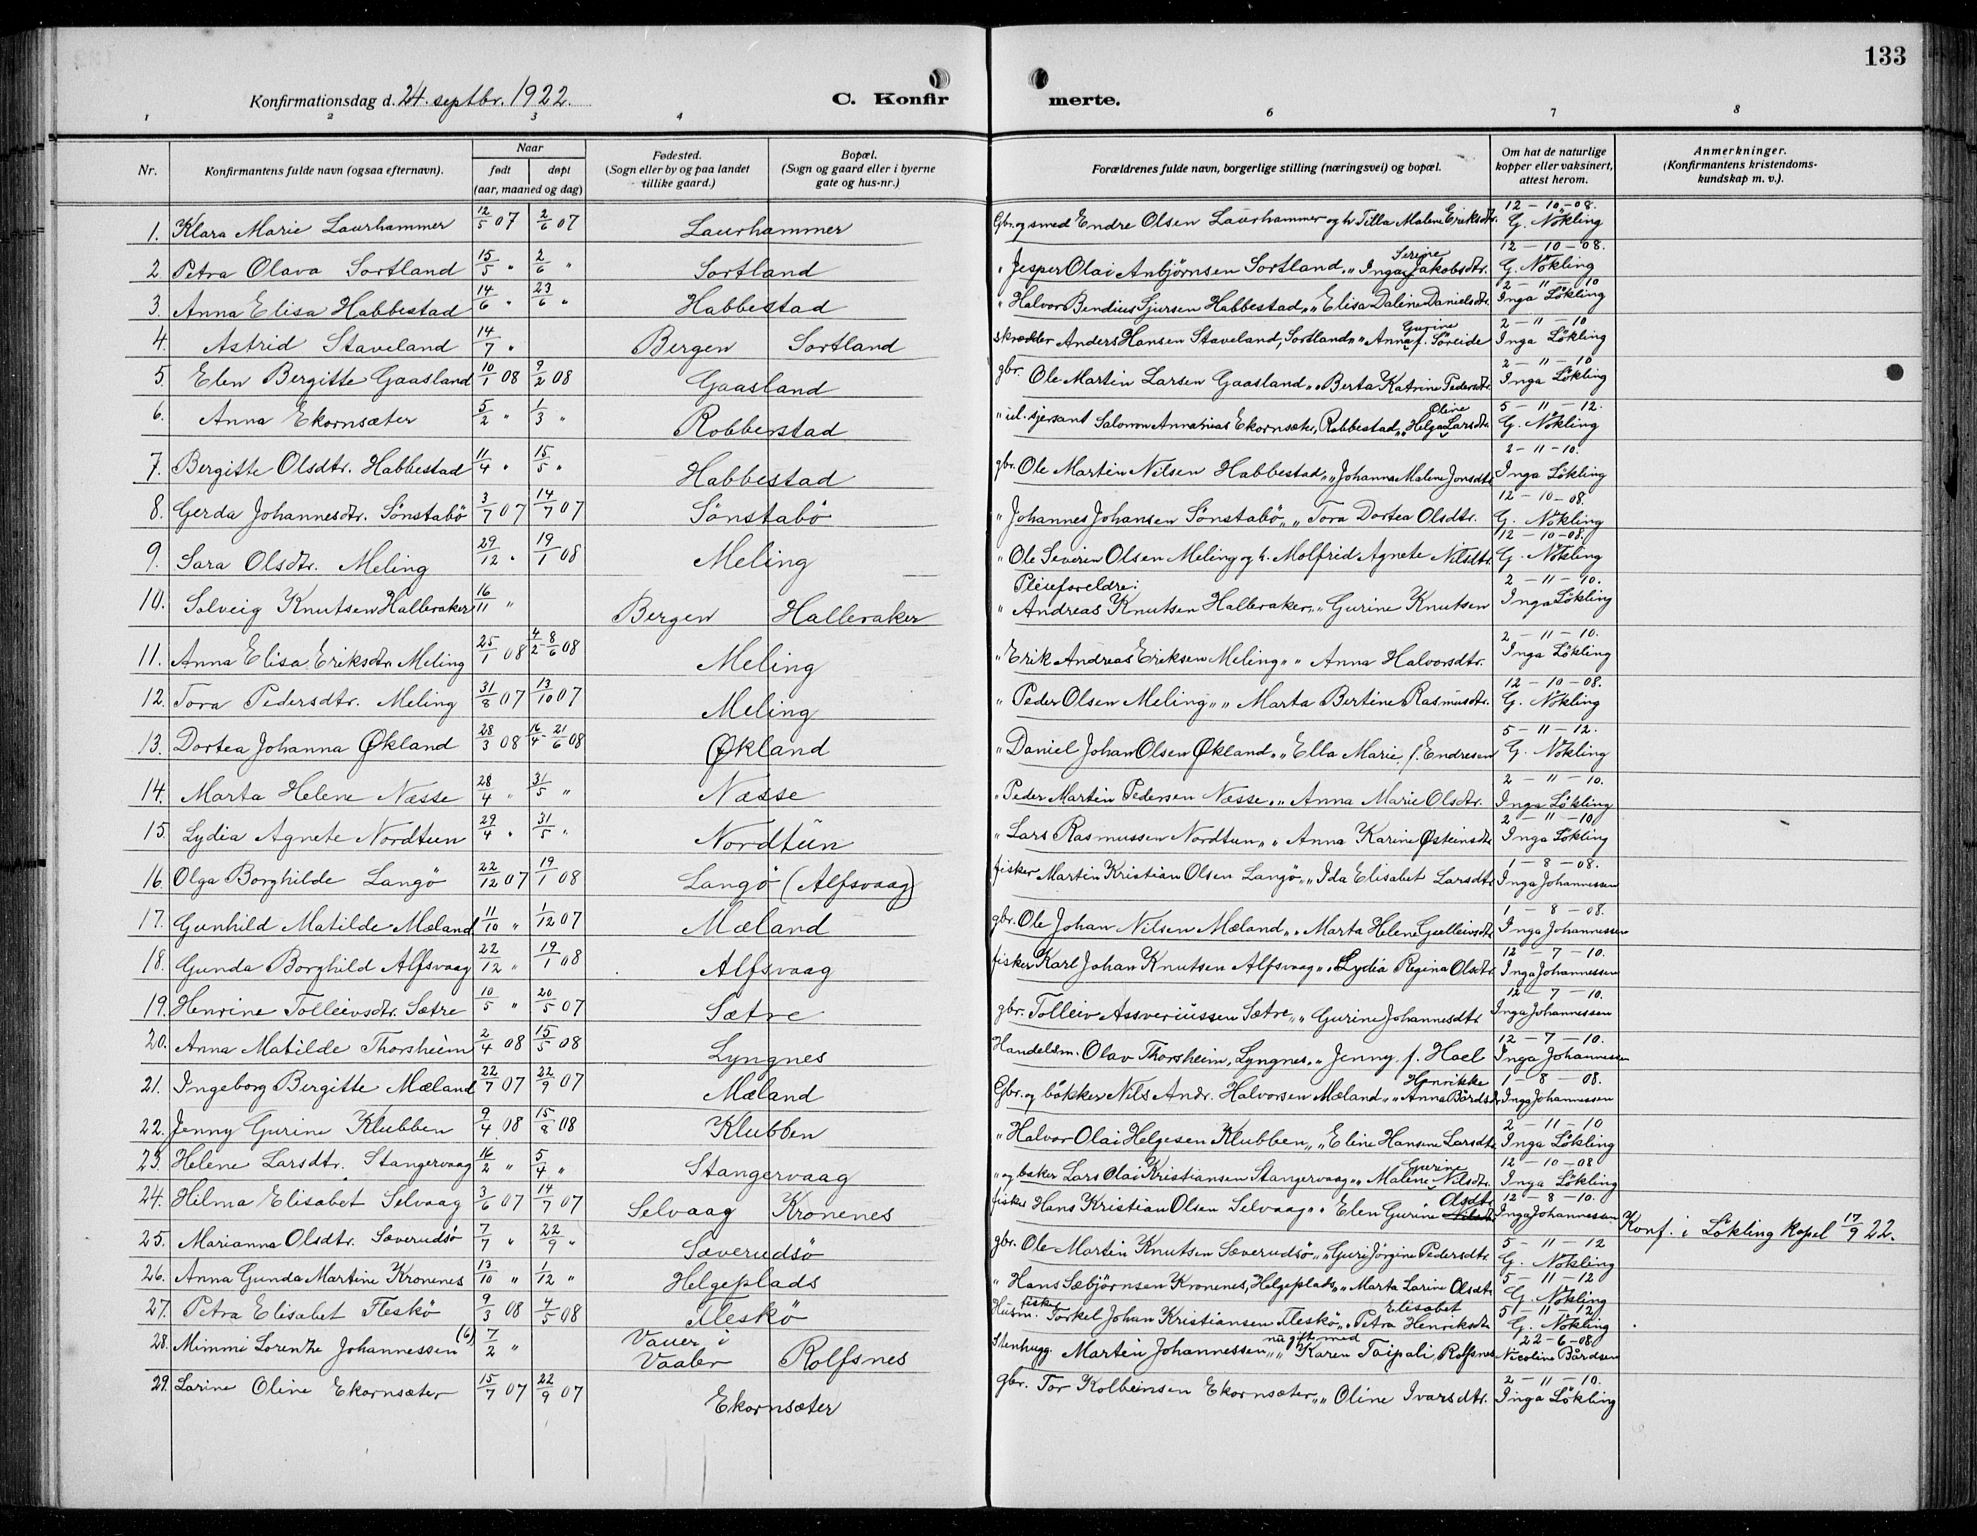 133
Konfirmationsdag d. 24. septbr. 1922.
C. Konfirmerte.
1 2 3 4 6 7 8
Nr. Konfirmantens fulde navn (ogsaa efternavn). Naar født døpt (aar, maaned og dag) Fødested. (Sogn eller by og paa landet tillike gaard.) Bopæl. (Sogn og gaard eller i byerne gate og hus-nr.) Forældrenes fulde navn, borgerlige stilling (næringsvei) og bopæl. Om hat de naturlige kopper eller vaksinert, attest herom. Anmerkninger. (Konfirmantens kristendomskundskap m. v.).
1. Klara Marie Laurhammer 12/5 07 2/6 07 Laurhammer Gbr. og smed Endre Olsen Laurhammer og h. Tilla Malene Eriksdtr. 12-10-08. G. Nökling
2. Petra Olava Sortland 15/5 " 2/6 " Sortland " Jesper Olai Anbjørnsen Sortland " " Inga Serine Jakobsdtr. 12-10-08. G. Nökling
3. Anna Elisa Habbestad 14/6 " 23/6 " Habbestad " Halvor Bendius Sjursen Habbestad " " Elisa Daline Danielsdtr. 2-11-10 Inga Lökling
4. Astrid Staveland 14/7 " Bergen Sortland skrædder Anders Hansen Staveland, Sortland " " Anna Gurine f. Søreide 2-11-10 Inga Lökling
5. Elen Bergitte Gaasland 10/1 08 9/2 08 Gaasland gbr. Ole Martin Larsen Gaasland " " Berta Katrine Pedersdtr. 2-11-10 Inga Lökling
6. Anna Ekornsæter 5/2 " 1/3 " Robberstad " Salomon Annanias Ekornsæter, Robbestad " " Helga Oline Larsdtr. 5-11-12. G. Nökling
7. Bergitte Olsdtr. Habbestad 11/4 " 15/5 " Habbestad gbr. Ole Martin Nilsen Habbestad " " Johanna Malene Jonsdtr. 2-11-10. Inga Lökling
8. Gerda Johannesdtr. Sönstabö 3/7 07 14/7 07 Sönstabö " Johannes Johansen Sönstabö " " Tora Dortea Olsdtr. 12-10-08. G. Nökling
9. Sara Olsdtr. Meling 29/12 " 19/1 08 Meling " Ole Severin Olsen Meling og h. Molfrid Agnete Nilsdtr. 12-10-08. G. Nökling
10. Solveig Knutsen Halleraker 16/11 " Bergen Halleraker Pleieforeldre: " Andreas Knutsen Halleraker " " Gurine Knutsen 2-11-10. Inga Lökling
11. Anna Elisa Eriksdtr. Meling 25/1 08 4/2 - 8/6 08 Meling " Erik Andreas Eriksen Meling " " Anna Halvorsdtr. 2-11-10. Inga Lökling
12. Tora Pedersdtr. Meling 31/8 07 13/10 07 Meling " Peder Olsen Meling " " Marta Bertine Rasmusdtr. 12-10-08. G. Nökling
13. Dortea Johanna Økland 28/3 08 16/4 - 21/6 08 Økland " Daniel Johan Olsen Økland " " Ella Marie, f. Endresen 5-11-12. G. Nökling
14. Marta Helene Næsse 28/4 " 31/5 " Næsse " Peder Martin Pedersen Næsse " " Anna Marie Olsdtr. 2-11-10. Inga Lökling
15. Lydia Agnete Nordtun 29/4 " 31/5 " Nordtun " Lars Rasmussen Nordtun " " Anna Karine Østeinsdtr. 2-11-10 Inga Lökling
16. Olga Borghilde Langö 22/12 07 19/1 08 Langö (Alfsvaag) fisker Martin Kristian Olsen Langö " " Ida Elisabet Larsdtr. 1-8-08. Inga Johannessen
17. Gunhild Matilde Mæland 11/10 " 1/12 07 Mæland gbr. Ole Johan Nilsen Mæland " " Marta Helene 1-8-08. Inga Johannessen
18. Gunda Borghild Alfsvaag 22/12 " 19/1 08 Alfsvaag fisker Karl Johan Knutsen Alfsvaag " " Lydia Regina Olsdtr. 12-7-10. Inga Johannessen
19. Henrine Tolleivsdtr. Sætre 10/5 " 20/5 07 Sætre gbr. Tolleiv Assveriussen Sætre " " Gurine Johannesdtr. 12-7-10. Inga Johannessen
20. Anna Matilde Thorsheim 2/4 08 15/5 08 Lyngnes Handelsm. Olav Thorsheim, Lyngnes " " Jenny, f. Hoel 12-7-10. Inga Johannessen
21. Ingeborg Bergitte Mæland 22/7 07 22/9 07 Mæland Gbr. og bökker Nils Andr. Halvorsen Mæland " " Anna Henrikke Bårdsdtr. 1-8-08. Inga Johannessen
22. Jenny Gurine Klubben 9/4 08 15/8 08 Klubben " Halvor Olai Helgesen Klubben " " Eline Hansine Larsdtr. 2-11-10 Inga Lökling
23. Helene Larsdtr. Stangervaag 16/2 " 5/4 " Stangervaag " og baker Lars Olai Kristiansen Stangervaag " " Malene Gurine Nilsdtr. 12-10-08 Inga Lökling
24. Hilma Elisabet Selvaag 3/6 07 14/7 07 Selvaag Kronenes fisker Hans Kristian Olsen Selvaag " " Elen Gurine Nilsdtr. Olsdtr. 12-8-10. Inga Johannessen Konf. i Lökling kapel 17/9 22.
25. Marianna Olsdtr. Sæverudsö 7/7 " 22/9 " Sæverudsö gbr. Ole Martin Knutsen Sæverudsö " " Guri Jörgine Pedersdtr. 5-11-12 G. Nökling
26. Anna Gunda Martine Kronenes 13/10 " 1/12 " Helgeplads " Hans Sæbjörnsen Kronenes, Helgeplads " " Marta Larine Olsdtr. 5-11-12 G. Nökling
27. Petra Elisabet Fleskö 9/3 08 4/5 08 Fleskö Husm. fisker Torkel Johan Kristiansen Fleskö " " Petra Elisabet Henriksdtr. 5-11-12 G. Nökling
28. Mimmi Lorentze Johannessen (6) 7/2 " Vauer i Vaaler Rolfsnes Stenhugg. Martin Johannessen " " nu gift med Karen Taipali, Rolfsnes 22-6-08 Nicoline Bårdsen
29. Larine Oline Ekornsæter 15/7 07 22/9 07 Ekornsæter gbr. Tor Kolbeinsen Ekornsæter " " Oline Ivarsdtr. 2-11-10. Inga Lökling